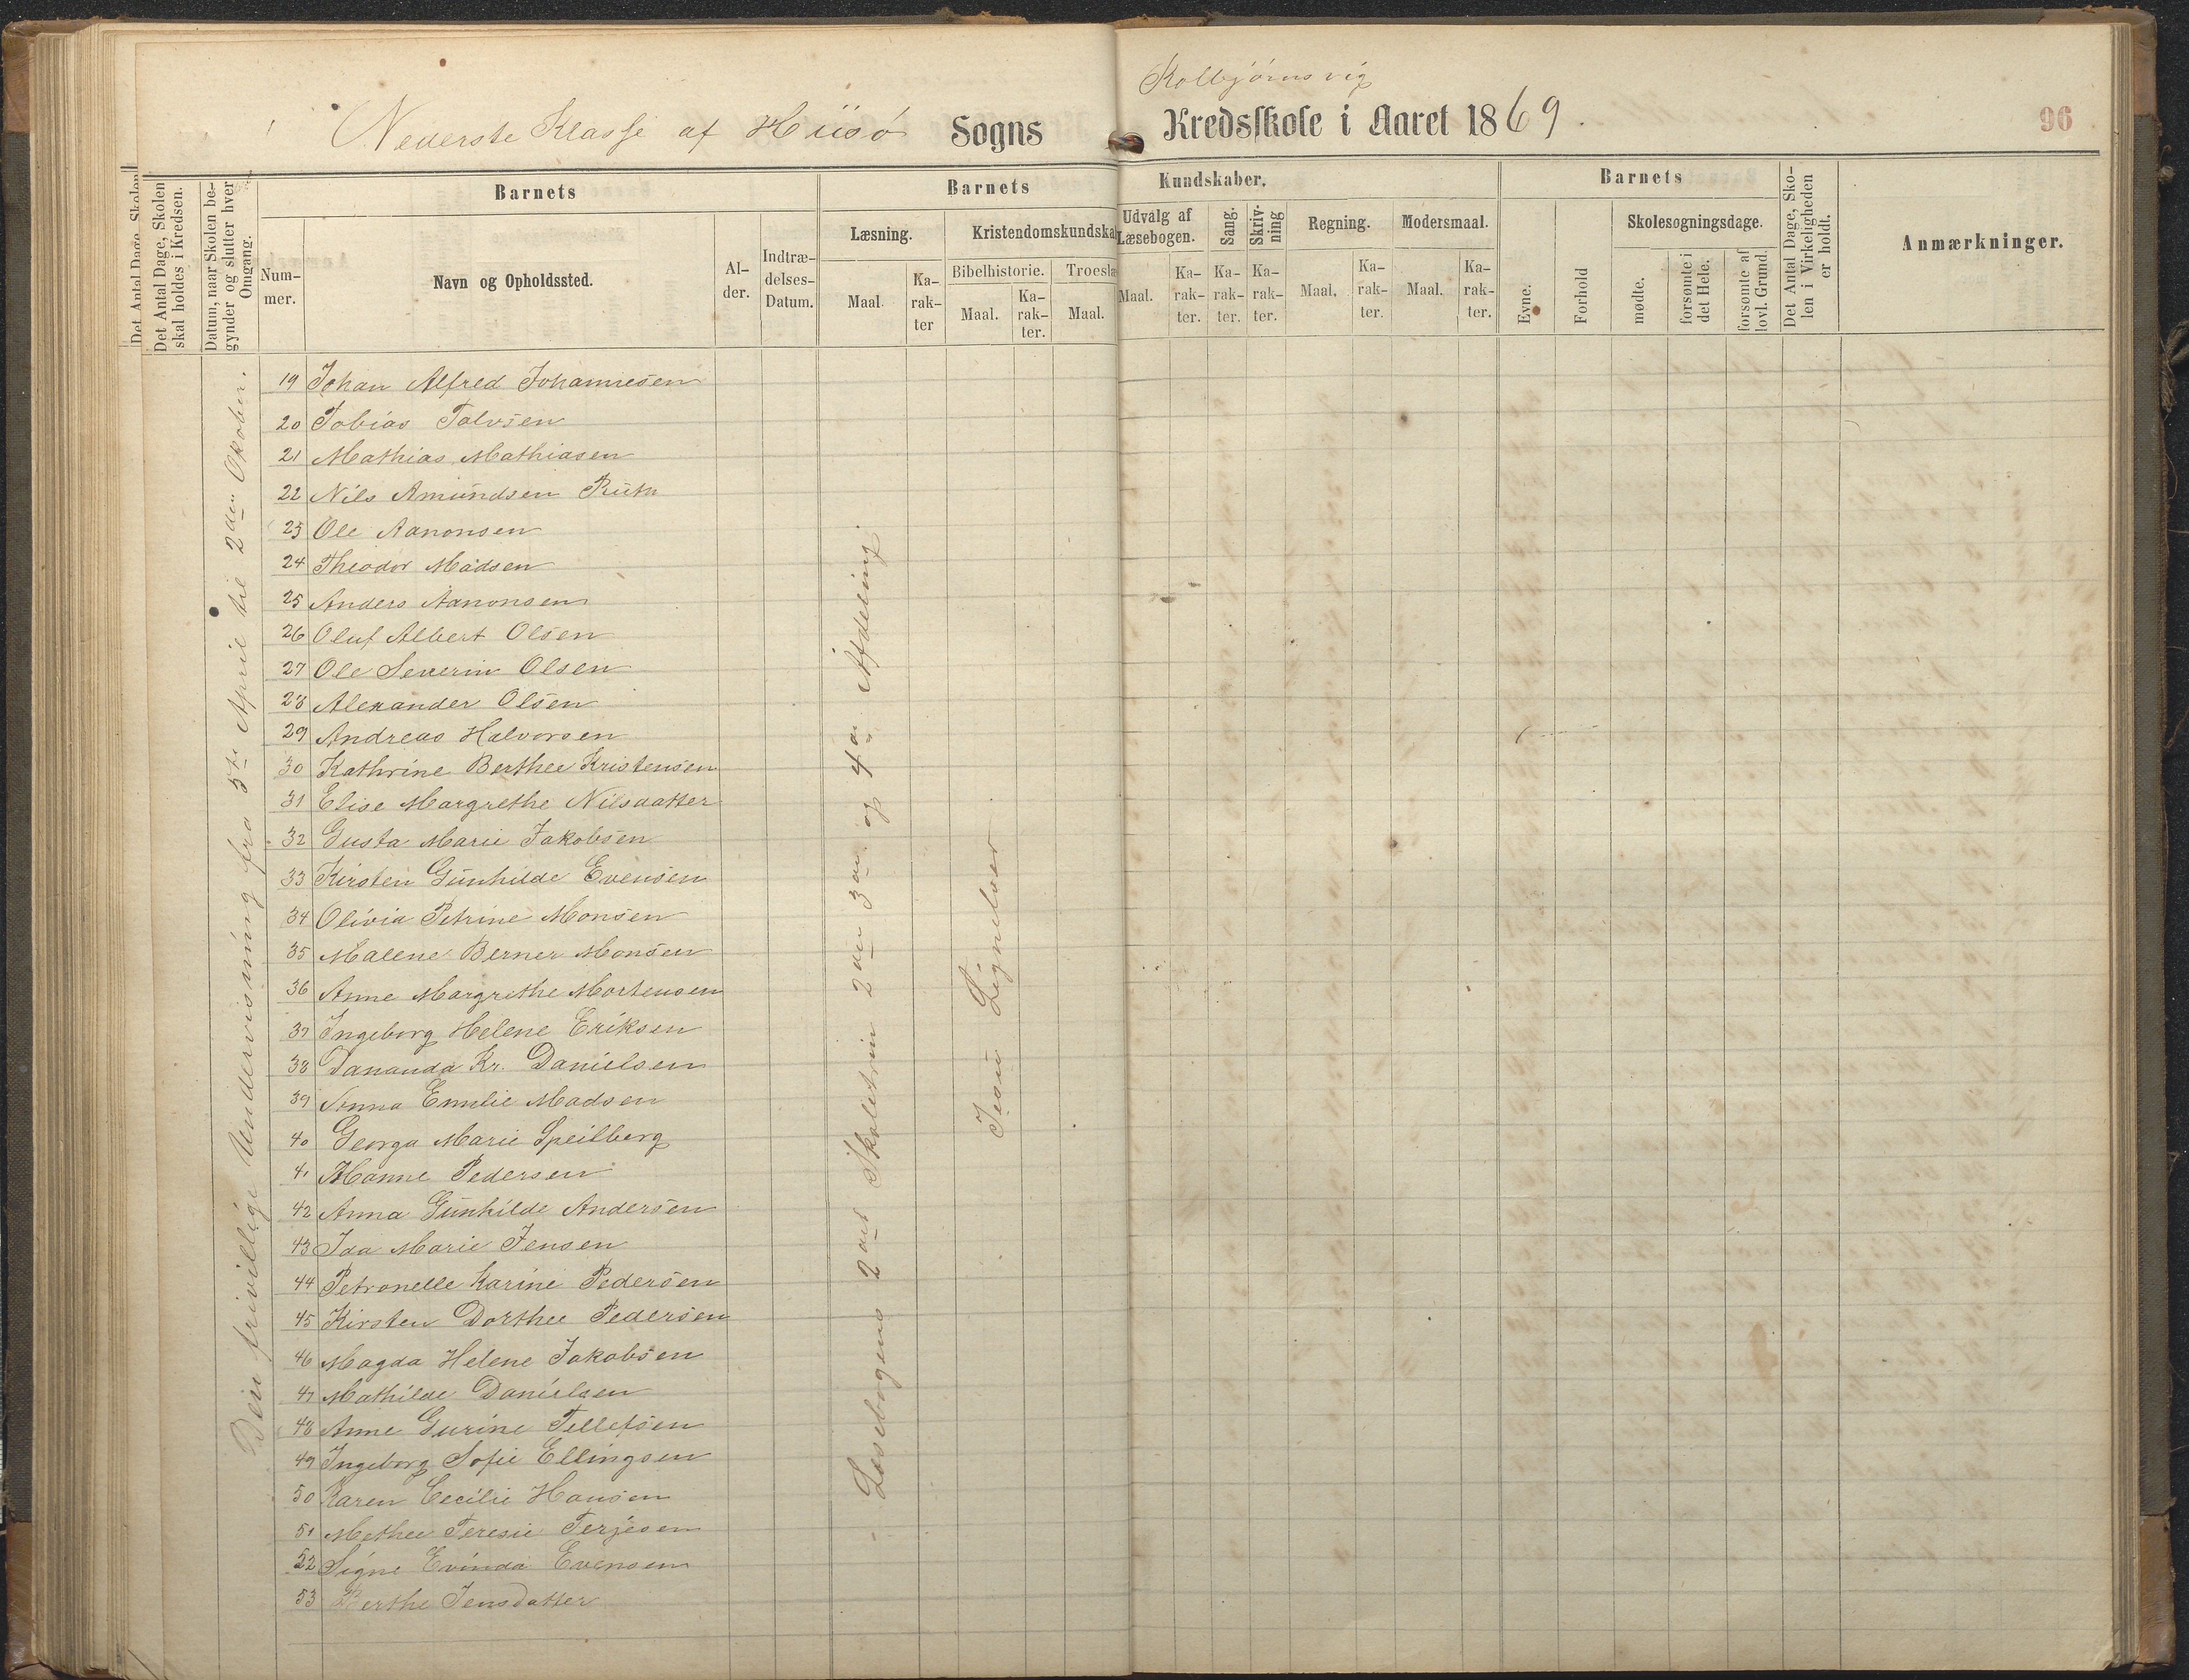 Kolbjørnsvig
Nederste Klasse af Hiisø Sogns Kredsskole i Aaret 1869.
96
Det Antal Dage, Skolen
Det Antal Dage, Skolen
skal holdes i Kredsen.
Datum, naar Skolen be-
gynder og slutter hver
Omgang.
Barnets
Num-
mer.
Navn og Opholdssted.
Al-
der.
Indtræ-
delses-
Datum.
Barnets
Læsning.
Maal.
Ka-
rak-
ter
Kristendomskundska
Bibelhistorie.
Maal.
Ka-
rak-
ter.
Troesla
Maal.
Kundskaber.
Udvalg af
Læsebogen.
Maal.
Ka-
rak-
ter.
Sang.
Ka-
rak-
ter.
Skriv-
ning
Ka-
rak-
ter.
Regning.
Maal.
Ka-
rak-
ter.
Modersmaal.
Maal.
Ka-
rak-
ter.
Barnets
Evne.
Forhold
Skolesøgningsdage.
mødte.
forsømte i
det Hele.
forsømte af
lovl. Grund.
Det Antal Dage, Sko-
len i Virkeligheden
er holdt.
Anmærkninger.
Den frivillige Undervisning fra 5te April til 2den Oktober.
19 Johan Alfred Johannesen
20 Tobias Talvsen
21 Mathias Mathiasen
22 Nils Amundsen Ruth
23 Ole Aanonsen
24 Theodor Madsen
25 Anders Aanonsen
26 Oluf Albert Olsen
27 Ole Severin Olsen
28 Alexander Olsen
29 Andreas Halvorsen
30 Kathrine Berthee Kristensen
31 Elise Margrethe Nilsdatter
32 Gusta Marie Jakobsen
33 Kirsten Gunhilde Evensen
34 Olivia Petrine Monsen
35 Malene Berner Monsen
36 Anne Margrethe Mortensen
37 Ingeborg Helene Eriksen
38 Kr. Danielsen
39 Emelie Madsen
40 Georga Marie Speilberg
41 Hanne Pedersen
42 Anna Gunhilde Andersen
43 Ida Marie Jensen
44 Petronelle Karine Pedersen
45 Kirsten Dorthee Pedersen
46 Magda Helene Jakobsen
47 Mathilde Danielsen
48 Anne Gurine Tellefsen
49 Ingeborg Sofie Ellingsen
50 Karen Cecilie Hansen
51 Methee Teresie Terjesen
52 Signe Evinda Evensen
53 Berthe Jensdatter
Læsebogens 2det Skoletrin 2den 3die og 4de Afdeling.
Jesu Lignelser